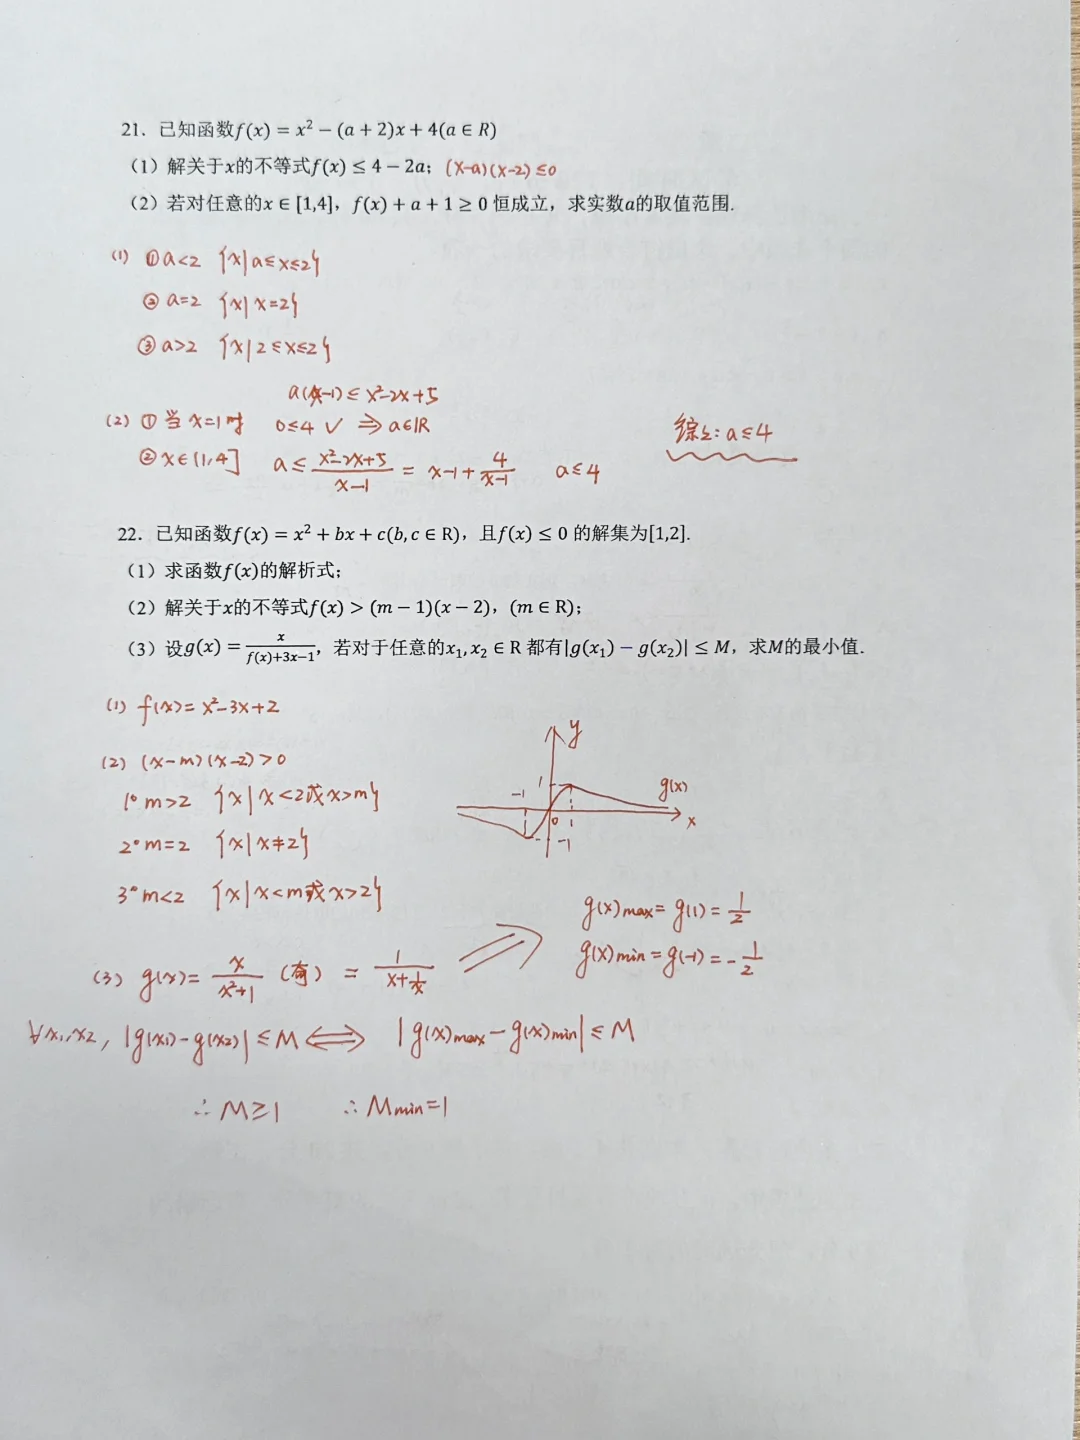 21. 已知函数f(x) = x² − (a + 2)x + 4(a ∈ R)
（1）解关于x的不等式f(x) ≤ 4 − 2a; (x-a)(x-2) ≤0
（2）若对任意的x ∈ [1,4]，f(x) + a + 1 ≥ 0 恒成立，求实数a的取值范围.
(1) ① a<2 {x|a≤x≤2}
② a=2 {x|x=2}
③ a>2 {x|2≤x≤2}
a(x-1) ≤ x²-2x+5
(2) ① 当 x=1时 0≤4 ✓ ⇒ a∈R
综上: a≤4
② x∈(1,4] a ≤ (x²-2x+5)/(x-1) = x-1+4/(x-1) a≤4
22. 已知函数f(x) = x² + bx + c(b, c ∈ R)，且f(x) ≤ 0 的解集为[1,2].
（1）求函数f(x)的解析式;
（2）解关于x的不等式f(x) > (m − 1)(x − 2)，(m ∈ R);
（3）设g(x) = x/(f(x)+3x−1)，若对于任意的x₁, x₂ ∈ R 都有|g(x₁) − g(x₂)| ≤ M，求M的最小值.
(1) f(x)= x²-3x+2
(2) (x-m)(x-2)>0
1° m>2 {x|x<2或x>m}
2° m=2 {x|x≠2}
3° m<2 {x|x<m或x>2}
y
1
-1
g(x)
0 1 x
-1
g(x)max = g(1) = 1/2
g(x)min = g(-1) = -1/2
(3) g(x)= x/(x²+1) (奇) = 1/(x+1/x) ⇒
∀x₁,x₂, |g(x₁)-g(x₂)| ≤ M ⟺ |g(x)max - g(x)min| ≤ M
∴ M≥1 ∴ Mmin=1